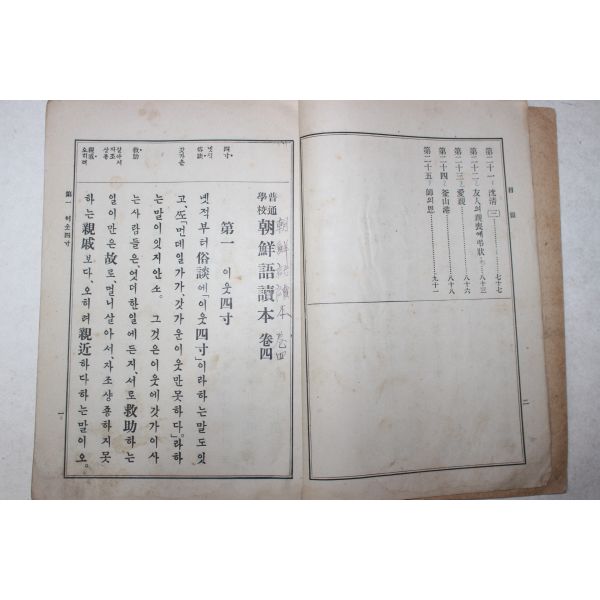 目錄
第二十一 沈淸(三)……七十七
第二十二 友人의親喪에弔狀……八十三
第二十三 愛親……八十六
第二十四 釜山港……八十八
第二十五 師의恩……九十一
二
普通學校 朝鮮語讀本 卷四
朝鮮語讀本 卷四
第一 이웃四寸
넷적부터俗談에「이웃四寸」이라하는말도잇
고、ᄯᅩ「먼데일가가、갓가운이웃만못하다」라하
는말이잇지안소。그것은이웃에갓가이사
는사람들은、엇더한일에든지、서로救助하는
일이만은故로、멀니살아서、자조상종하지못
하는親戚보다、오히려親近하다하는말이오。
四寸
넷적
俗談
갓가운
救助
살아서
자조
상종
親戚
오히려
第一 이웃四寸
一